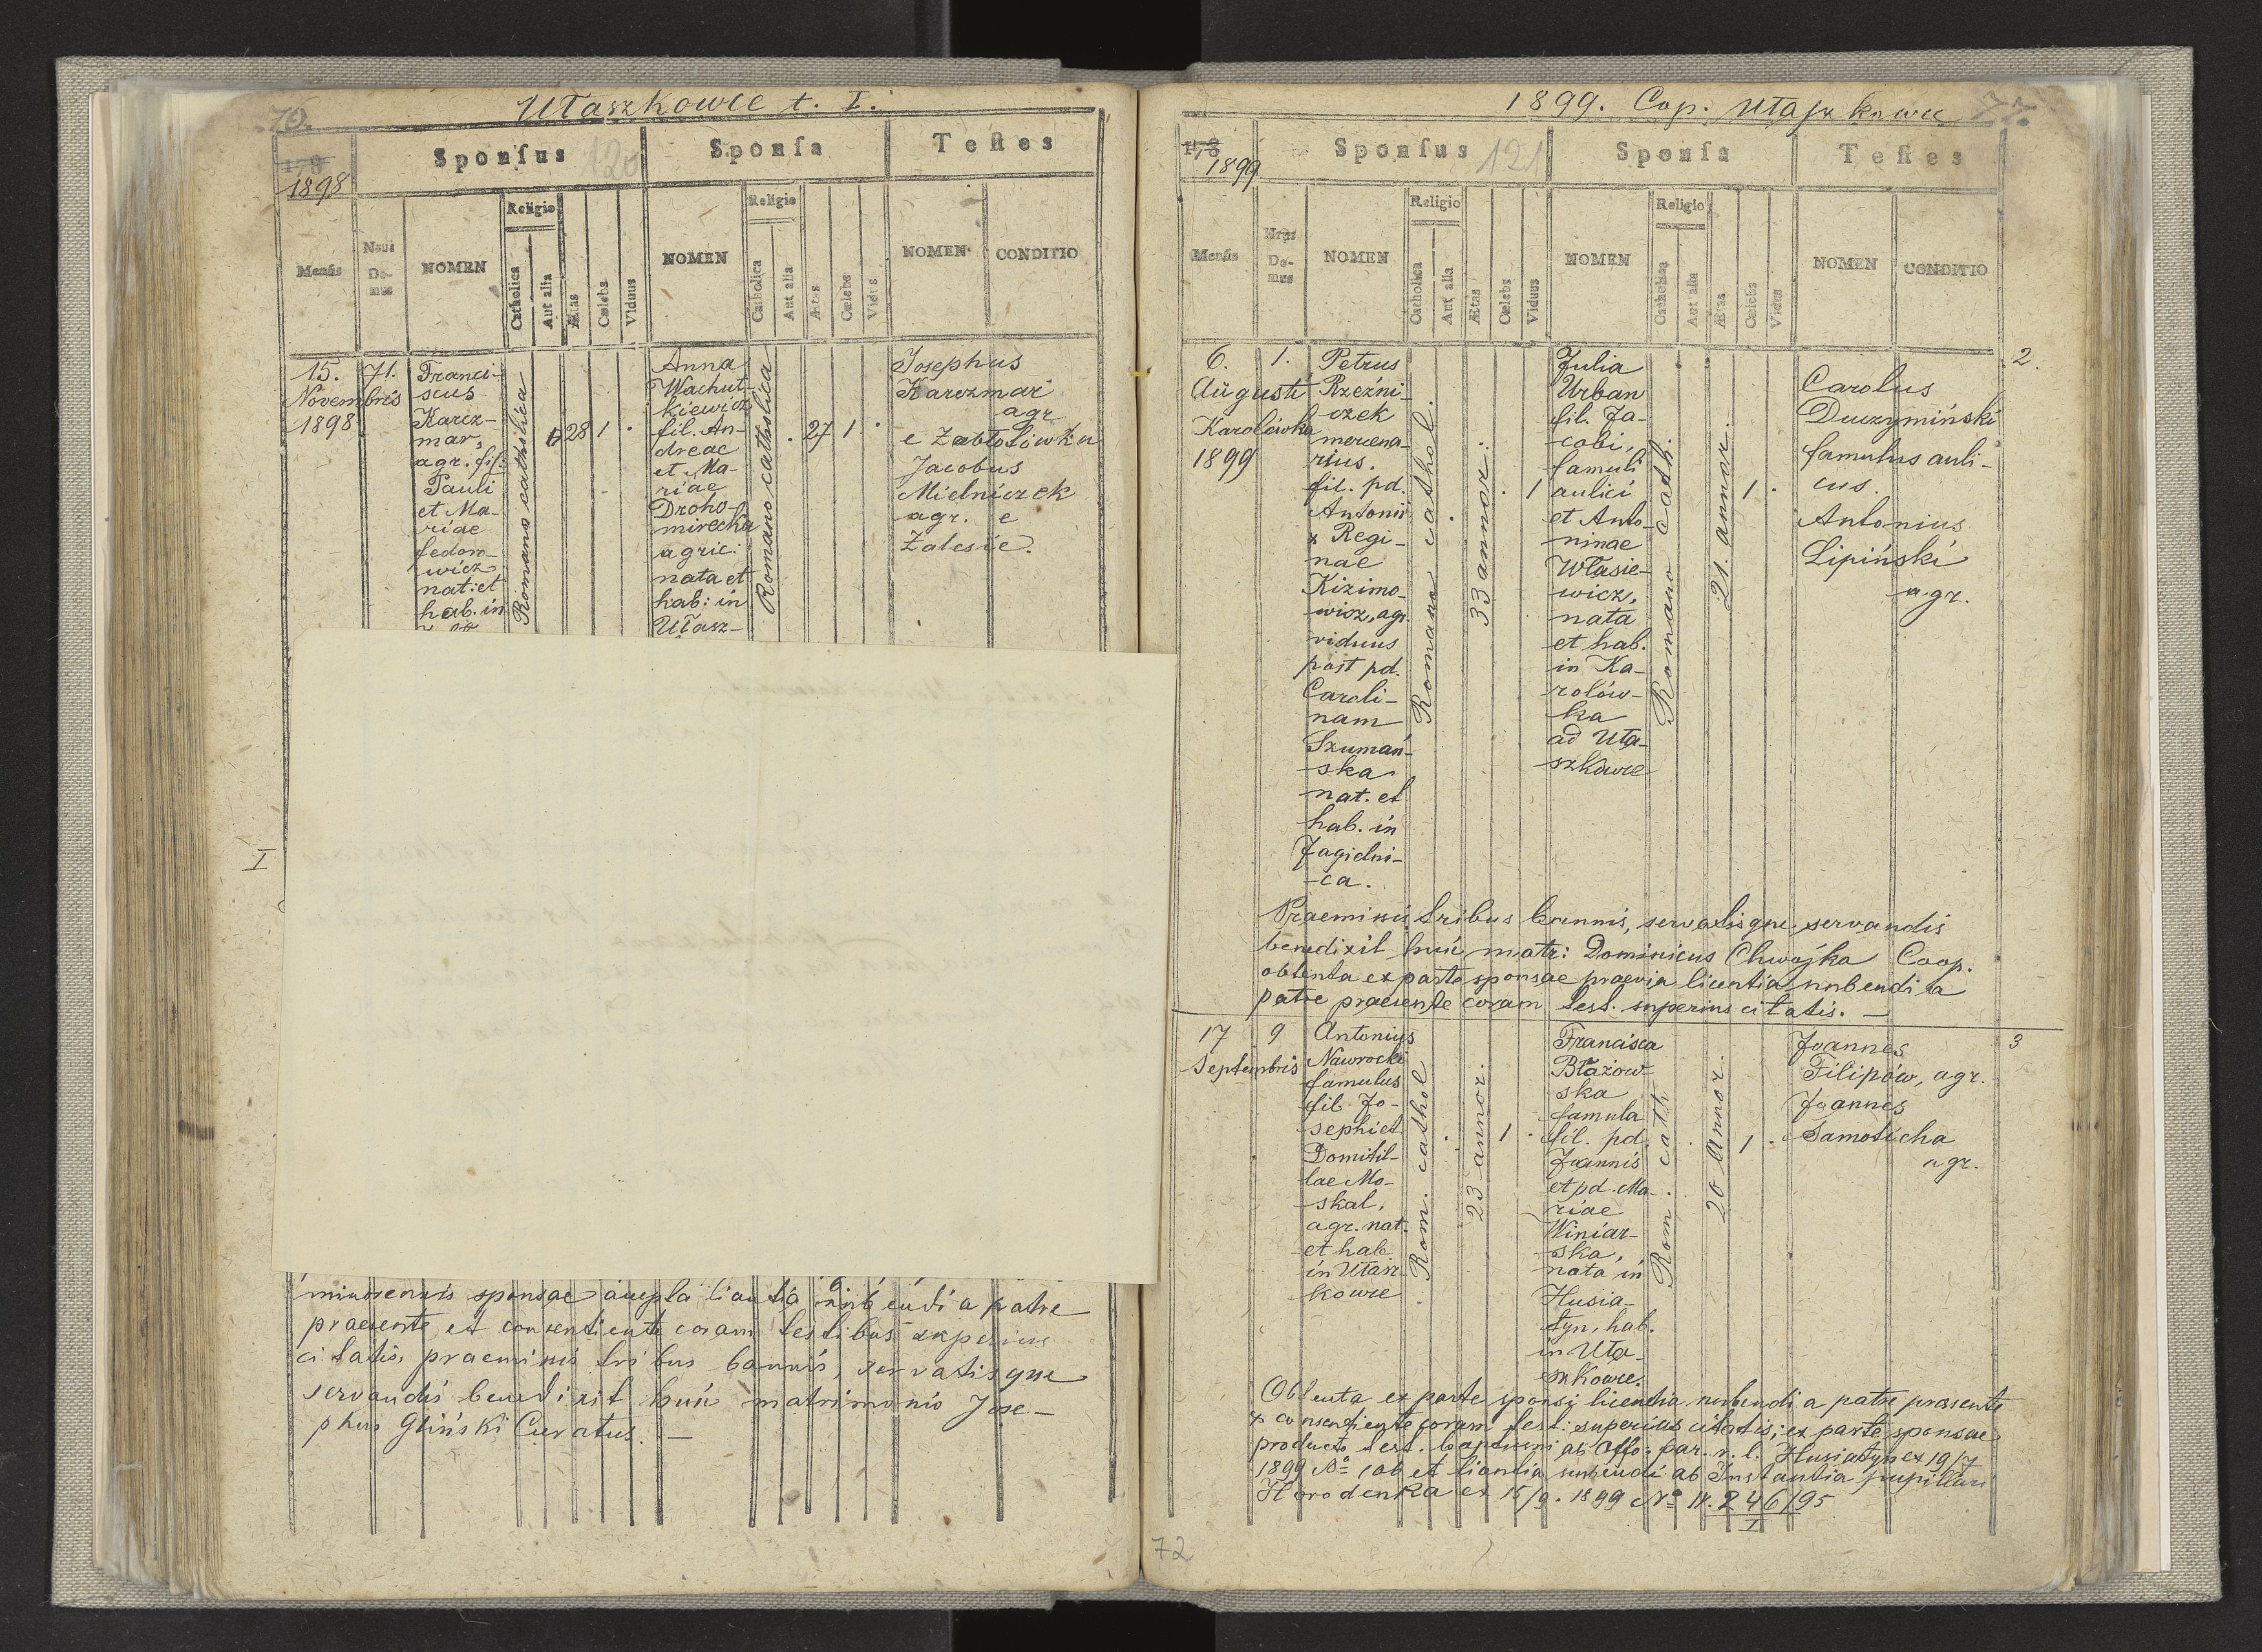 70.
Ułaszkowce t. I.
Sponsus
120
Sponsa
Testes
178
1898
Mensis
Nrus Do-mus
NOMEN
Religio
Catholica
Aut alia
Ætas
Cœlebs
Viduus
NOMEN
Religio
Catholica
Aut alia
Ætas
Cœlebs
Vidus
NOMEN
CONDITIO
15.
Novembris
1898
71.
Franci-
scus
Karcz-
mar,
agr. fil:
Pauli
et Ma-
riae
Fedoro-
wicz
nat: et
hab. in
Romano catholica
28
1
.
Anna
Wachut-
kiewicz
fil. An-
dreae
et Ma-
riae
Droho-
mirecka
agric:
nata et
hab: in
Ułasz-
Romano catholica
.
27
1
.
Josephus
Karczmar
agr
e Zabłotówka
Jacobus
Mielniczek
agr. e
Zalesie.
I
minorennis sponsae nubendi a patre
praesente et consentiente coram testibus superius
citatis, praemissis tribus bannis, servatisque
servandis benedixit huic matrimonio Jose-
phus Gliński Curatus. —
1899. Cop. Ułaszkowce
71.
178
1899
Sponsus
121
Sponsa
Testes
Mensis
Nrus Do-mus
NOMEN
Religio
Catholica
Aut alia
Ætas
Cœlebs
Viduus
NOMEN
Religio
Catholica
Aut alia
Ætas
Cœlebs
Vidus
NOMEN
CONDITIO
6.
Augusti
Karolówka
1899
1.
Petrus
Rzeźni-
czek
mercena-
rius.
fil. pd.
Antonii
& Regi-
nae
Kizimo-
wicz, agr.
viduus
post pd.
Caroli-
nam
Szumań-
ska
nat. et
hab. in
Jagielni-
-ca.
Romano cathol.
33 annor.
.
1
Julia
Urban
fil. Ja-
cobi,
famuli
aulici
et Anto-
ninae
Własie-
wicz,
nata
et hab.
in Ka-
rolów-
ka
ad Uła-
szkowce
Romano cath.
21. annor.
1
.
Carolus
Duczymiński
famulus auli-
cus.
Antonius
Lipiński
agr.
2.
Praemissis tribus bannis, servatisque servandis
benedixit huic matr: Dominicus Chwojka Coop.
obtenta ex parte sponsae praevia licentia nubendi a
patre praesente coram test. superius citatis. —
17
Septembris
9
Antonius
Nawrocki
famulus
fil. Jo-
sephi et
Domitil-
lae Mo-
skal,
agr. nat.
et hab.
in Ułasz
kowce
Rom. cathol
.
23 annor.
1
.
Francisca
Błażow-
ska
famula
fil. pd.
Joannis
et pd. Ma-
riae
Winiar-
ska,
nata in
Husia-
tyn, hab.
in Uła-
szkowce.
Rom cath.
.
20 Annor.
1
.
Joannes
Filipów, agr.
Joannes
Samoticha
agr.
3
Obtenta ex parte sponsi licentia nubendi a patre praesente
& consentiente coram test: superius citatis; ex parte sponsae
producto test. baptismi ab Offo. par. r. l. Husiatyn ex 19/7
1899 No 106 et licentia nubendi ab Instantia pupillari
Horodenka ex 15/9. 1899 No IV. 246/95
I
72